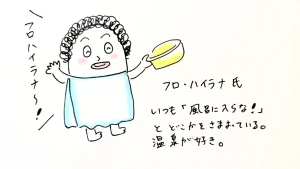 フロハイラナ〜！
フロ・ハイラナ 氏
いつも「風呂に入らな！」
と どこかをさまよっている。
温泉が好き。